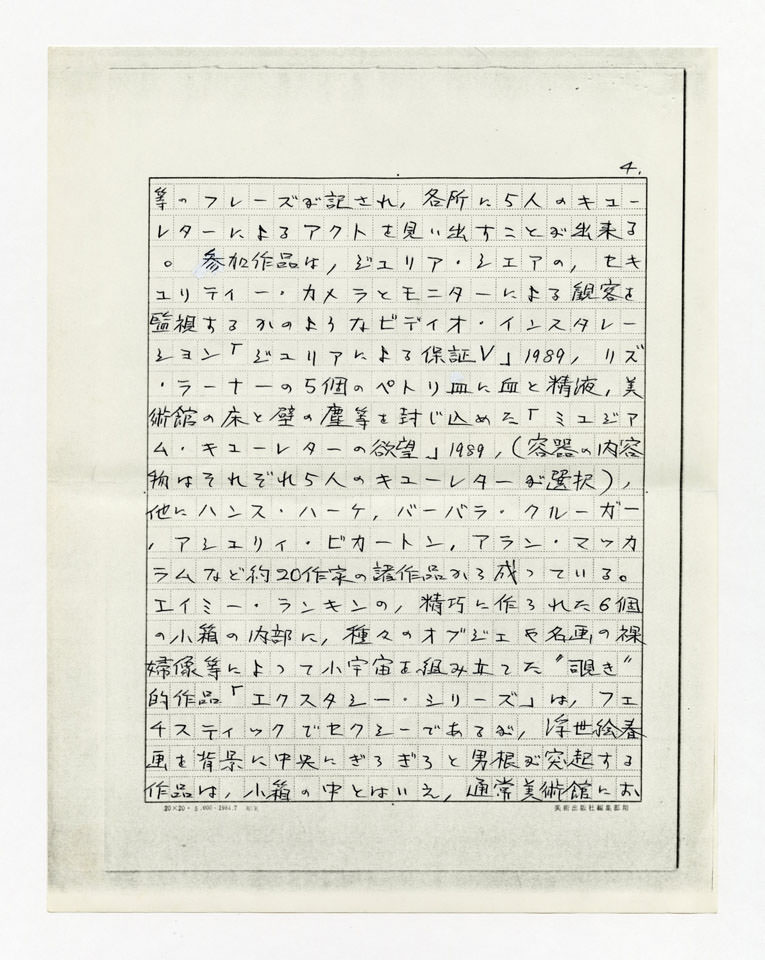 4.
等のフレーズが記され,各所に5人のキュー
レターによるアクトを見い出すことが出来る
。参加作品は,ジュリア・シエアの,セキ
ュリティー・カメラとモニターによる観客を
監視するかのようなビディオ・インスタレー
ション「ジュリアによる保証V」1989,リズ
・ラーナーの5個のペトリ皿に血と精液,美
術館の床と壁の塵等を封じ込めた「ミュジア
ム・キューレターの欲望」1989,(容器の内容
物はそれぞれ5人のキューレターが選択),
他にハンス・ハーケ,バーバラ・クルーガー
,アシュリィ・ビカートン,アラン・マッカ
ラムなど約20作家の諸作品から成っている。
エイミー・ランキンの,精巧に作られた6個
の小箱の内部に,種々のオブジェや名画の裸
婦像等によって小宇宙を組み立てた"覗き"
的作品「エクスタシー・シリーズ」は,フェ
チスティックでセクシーであるが,浮世絵春
画を背景に中央にぎろぎろと男根が突起する
作品は,小箱の中とはいえ,通常美術館にお
20×20・5,000・1984.7
美術出版社編集部用